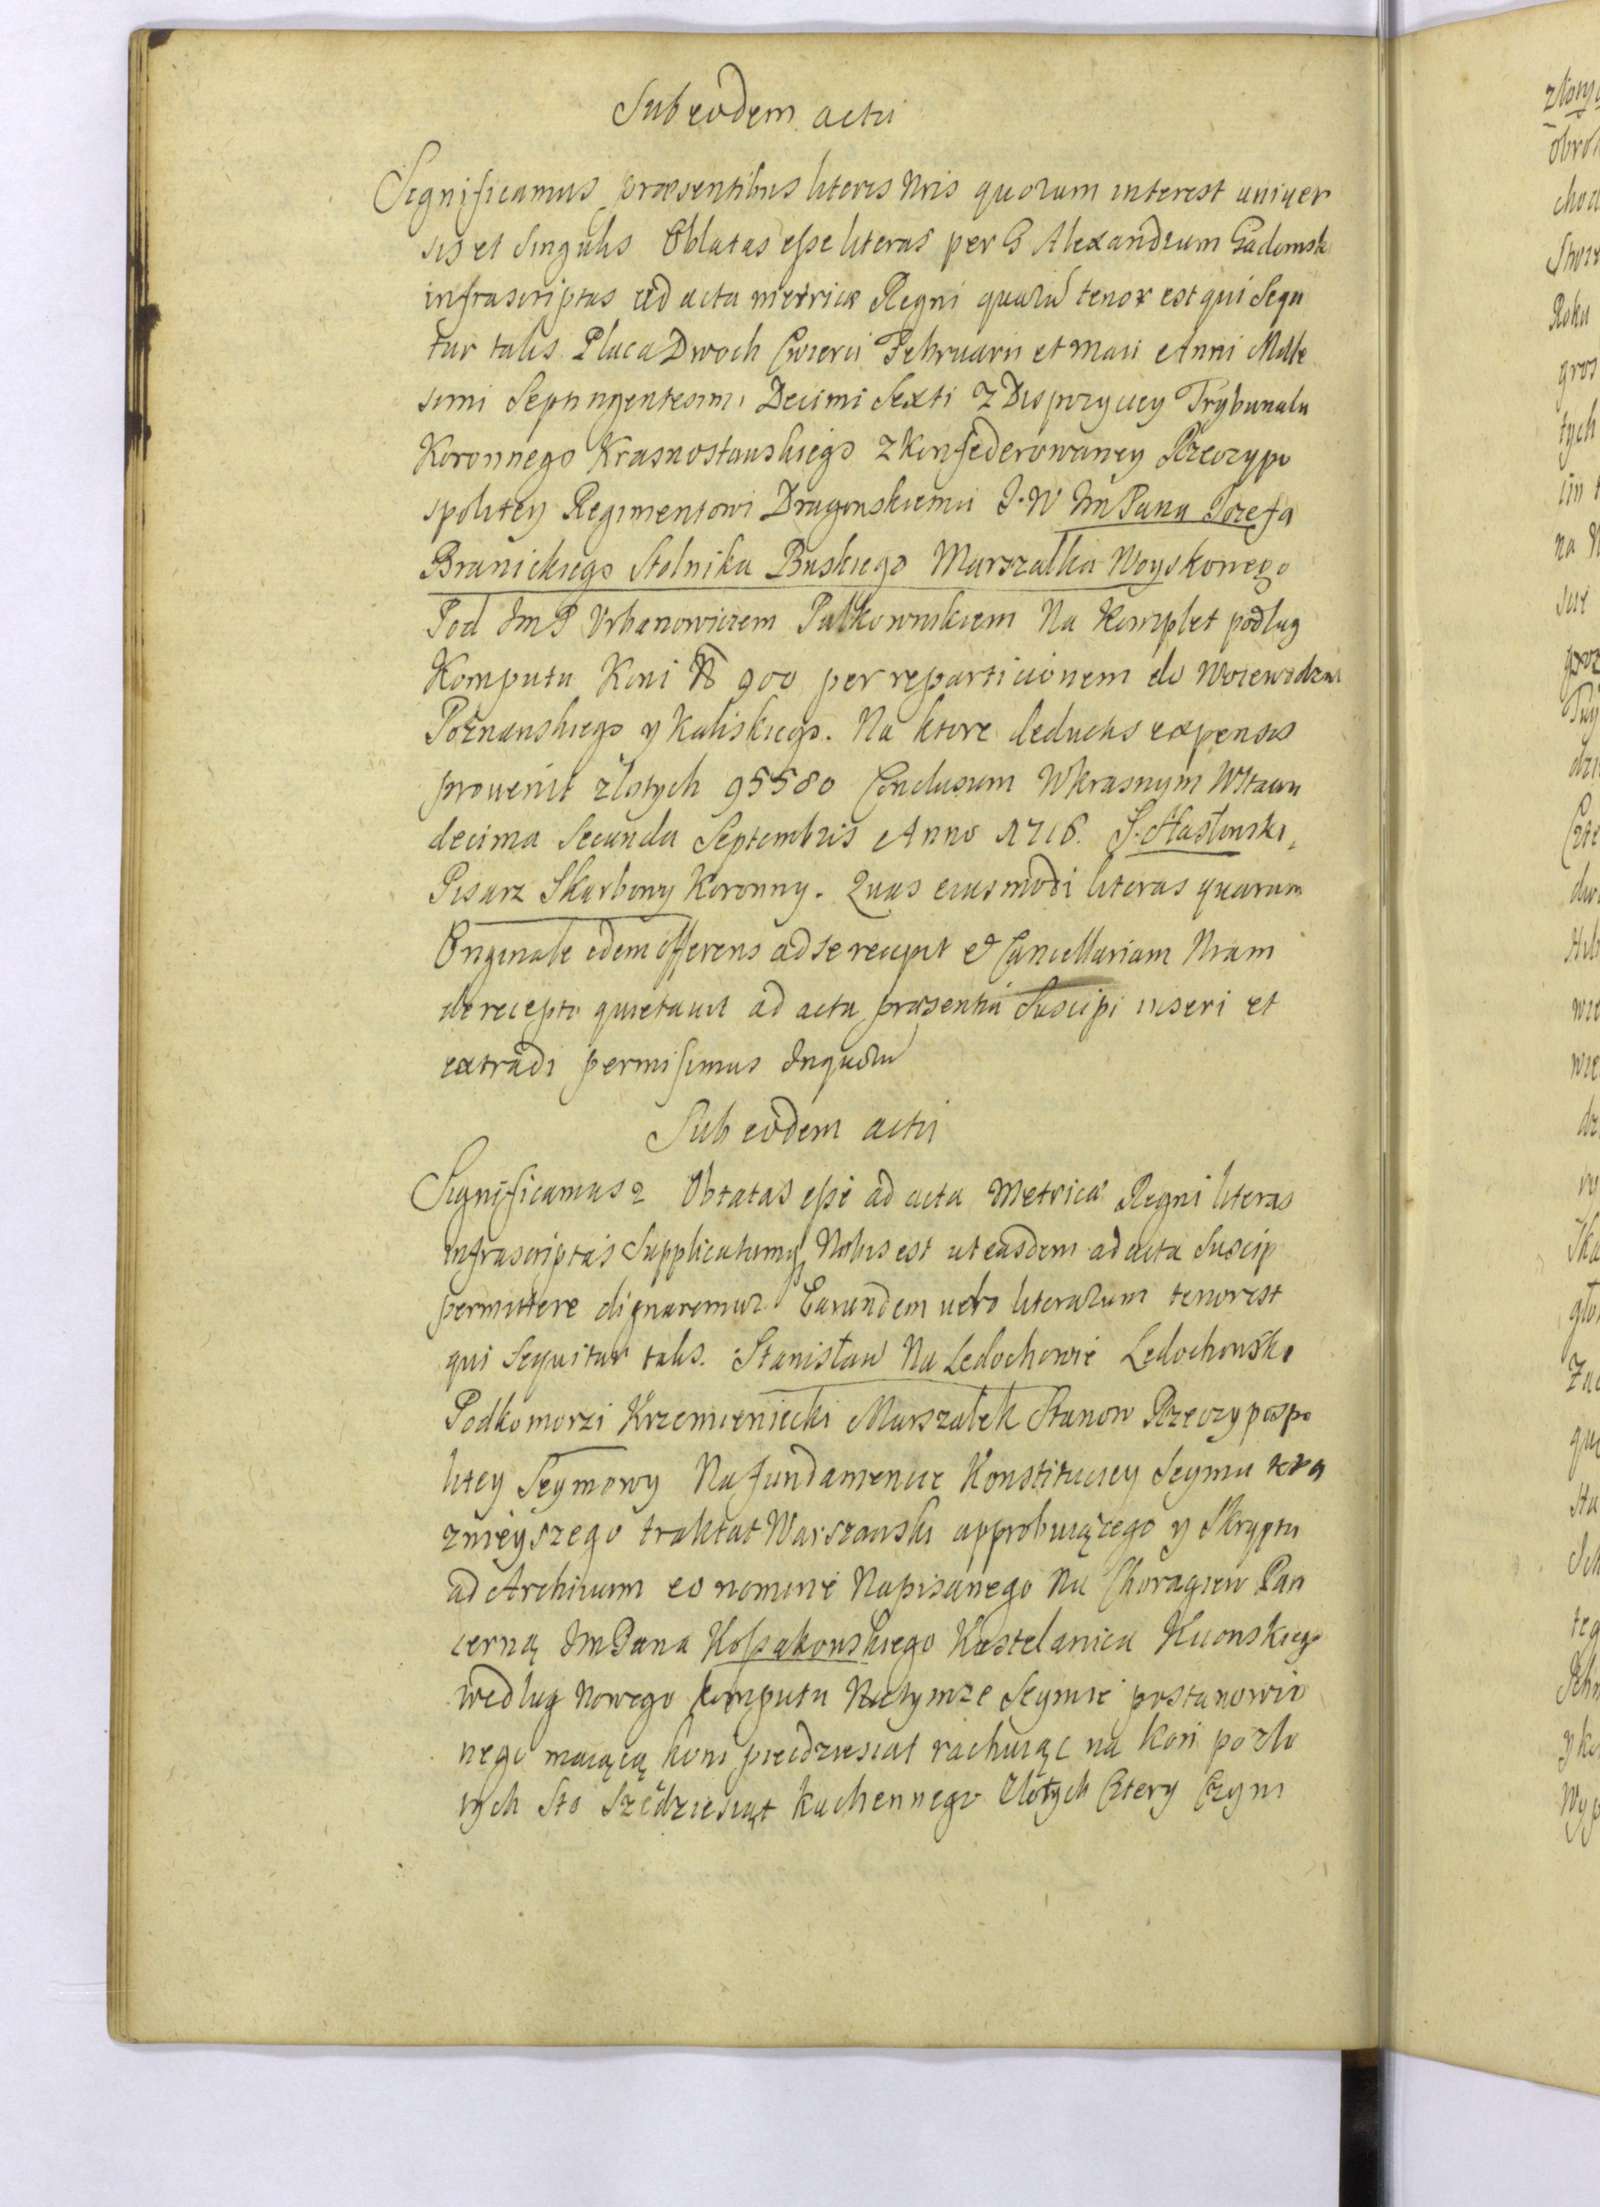 Sub eodem actu
Significamus praesentibus literis Nris quorum interest univer
sis et singulis Oblatas esse literas per G Alexandrum Gadomsk
infrascriptas ad acta metricae Regni quarū tenor est qui sequ
tur talis. Placa Dwoch Cwierci Februarii et Maii Anni Mille
simi Septingentesimi Decimi Sexti z Dispozycyey Trybunalu
Koronnego Krasnostauskiego z konfederowaney Rzeczypo
spolitey Regimentowi Dragonskiemu J. W Im Pana Jozefa
Branickiego Stolnika Buskiego Marszałka Woyskonego
Pod Im P Urbanowiczem Pułkownikiem Na Komplet podlug
Komputu Koni No 900 per reparticionem do Woiewodztw
Poznanskiego y Kaliskiego. Na ktore deductis expensis
prouenit złotych 95580 Conclusum W krasnym Wstawu
decima Secunda Septembris Anno 1716. J. Hasłowski
Pisarz Skarbowy Koronny. Quas eiusmodi literas quarum
Originale idem offerens ad se recepit et Cancellariam Nram
de recepto quietauit ad acta praesentia Suscipi inseri et
extradi permisimus Inquorū
Sub eodem actu
Significamus 2 Obtatas esse ad acta Metricae Regni literas
infrascriptas Supplicatumq Nobis est ut easdem ad acta Suscip
permittere dignaremur. Earundem uero literarum tenor est
qui Sequitur talis. Stanisław Na Ledochowie Ledochowsk
Podkomorzi Krzemieniecki Marszałek Stanow Rzeczypospo
litey Seymowy Na fundamencie Konstitucyey Seymu tera
znieyszego traktat Warszauski approbuiącego y Skryptu
ad Archiuum eo nomine Napisanego Na Choragiew Pan
cerną Im Pana Kossakouskiego Kastelanica Kiionskiego
według Nowego komputu Na tymze Seymie postanowio
nego maiącą koni piedziesiat rachuiąc na koń po zło
tych Sto Szedziesiąt kuchennego złotych Cztery Czyni